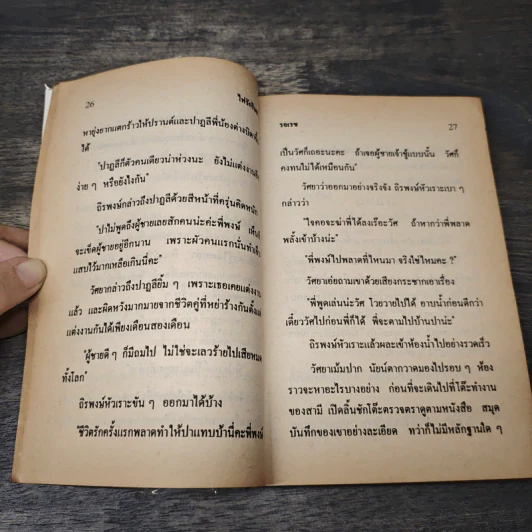 26
ไฟรัก
หายุ่งยากแตกร้าวให้ปรานต์และปาฏลีพี่น้องต่างบิดา
ได้
"ปาฏลีก็ตัวคนเดียวน่าห่วงนะ ยังไม่แต่งงาน
ง่าย ๆ หรือยังไงกัน"
ถิรพงษ์กล่าวถึงปาฏลีด้วยสีหน้าที่ครุ่นคิดหนัก
"ปาไม่พูดถึงผู้ชายเลยสักคนน่ะค่ะพี่พงษ์ เห็น
จะเข็ดผู้ชายอยู่อีกนาน เพราะผัวคนแรกนั้นทำ
แสบไว้มากเหลือเกินนี่คะ"
วัศยากล่าวถึงปาฏลียิ้ม ๆ เพราะเธอเคยแต่งงาน
แล้ว และผิดหวังมากมายจากชีวิตคู่ที่หย่าร้างกันตั้งแต่
แต่งงานกันได้เพียงเดือนสองเดือน
"ผู้ชายดี ๆ ก็มีถมไป ไม่ใช่จะเลวร้ายไปเสียหมด
ทั้งโลก"
ถิรพงษ์หัวเราะขัน ๆ ออกมาได้บ้าง
"ชีวิตรักครั้งแรกพลาดทำให้ปาแทบบ้านี่คะพี่พงษ์
รอเรซ
27
เป็นวัศก็เถอะนะคะ ถ้าเจอผู้ชายเจ้าชู้แบบนั้น วัศก็
คงทนไม่ได้เหมือนกัน"
วัศยาว่าออกมาอย่างจริงจัง ถิรพงษ์หัวเราะเบา ๆ
กล่าวว่า
"ใจคอจะฆ่าพี่ได้ลงเรอะวัศ ถ้าหากว่าพี่พลาด
พลั้งเข้าบ้างน่ะ"
"พี่พงษ์ไปพลาดที่ไหนมา จริงใช่ไหมคะ ?"
วัศยาเอ่ยถามเขาด้วยเสียงกระชากเอาเรื่อง
"พี่พูดเล่นน่ะวัศ โวยวายไปได้ อาบน้ำก่อนดีกว่า
เดี๋ยววัศไปก่อนพี่ก็ได้ พี่จะตามไปบ้านปาน่ะ"
ถิรพงษ์หัวเราะแล้วผละเข้าห้องน้ำไปอย่างรวดเร็ว
วัศยาเม้มปาก นัยน์ตากวาดมองไปรอบ ๆ ห้อง
ราวจะหาอะไรบางอย่าง ก่อนที่จะเดินไปที่โต๊ะทำงาน
ของสามี เปิดลิ้นชักโต๊ะตรวจตราดูตามหนังสือ สมุด
บันทึกของเขาอย่างละเอียด ทว่าก็ไม่มีหลักฐานใด ๆ